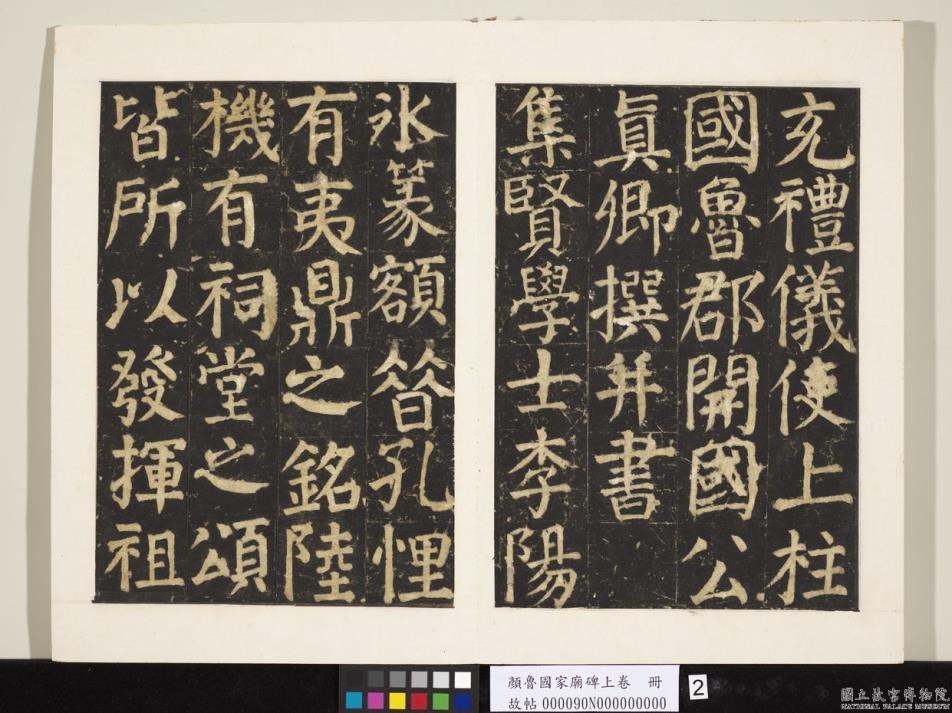 充禮儀使上柱
國魯郡開國公
真卿撰并書
集賢學士李陽
冰篆額昝孔悝
有夷鼎之銘陸
機有祠堂之頌
皆所以發揮祖
顏魯國家廟碑上卷 冊
故帖000090N000000000
2
國立故宮博物院
NATIONAL PALACE MUSEUM